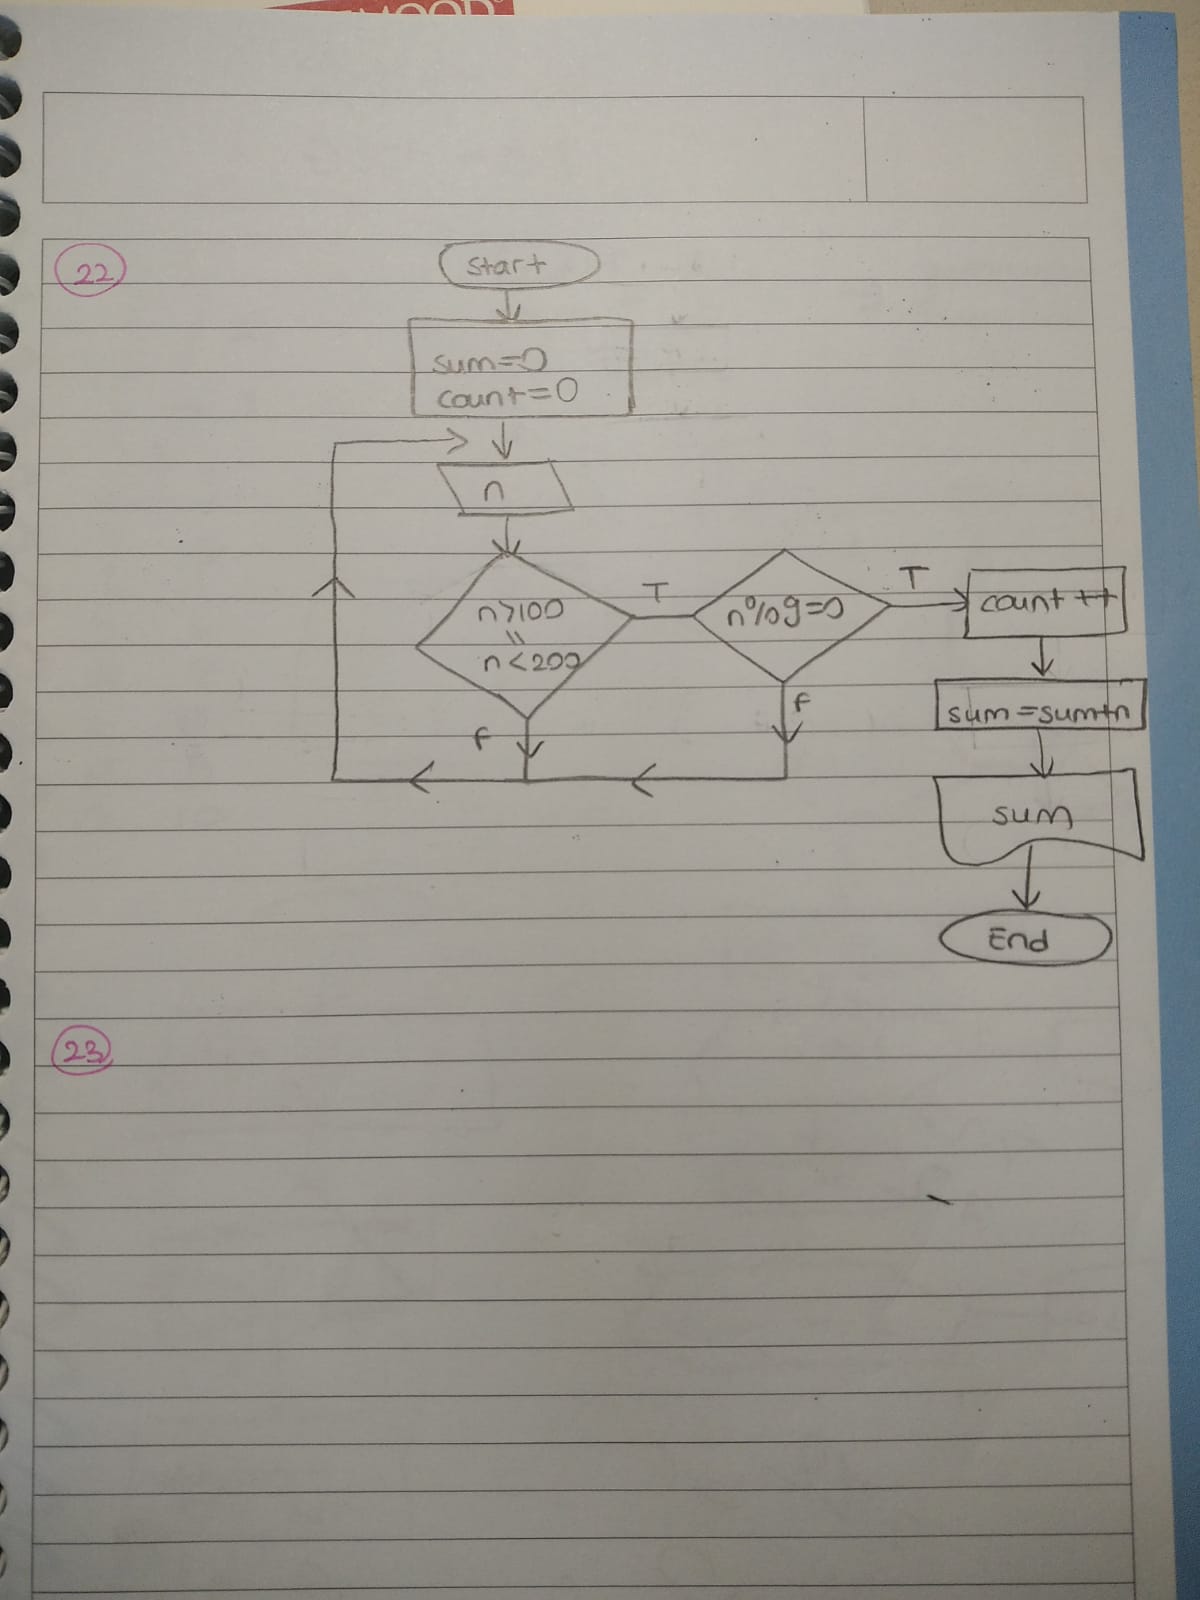 MOOD
22
start
sum=0
count=0
n
n>100
||
n<200
T
n%9=0
T
count ++
F
F
sum=sum+n
sum
End
23